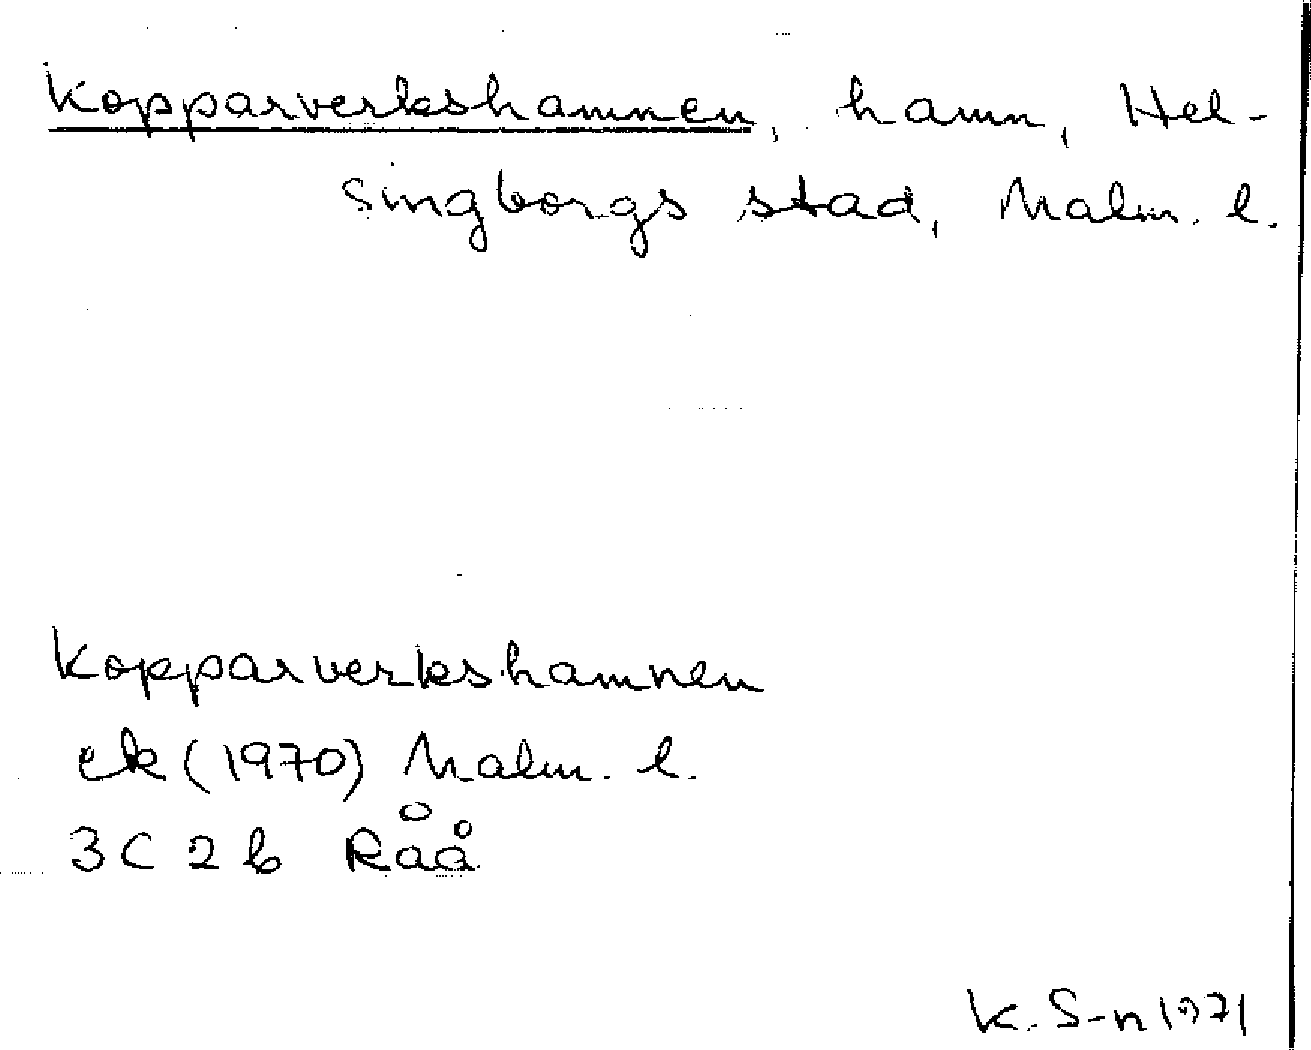 Kopparverkshamnen, hamn, Hel-
singborgs stad, Malm. l.
Kopparverkshamnen
ek (1970) Malm. l.
3C2b Råå
K. S-n 1971